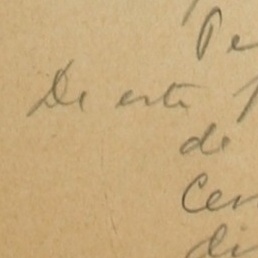 Pe
De este
de
Cen
di